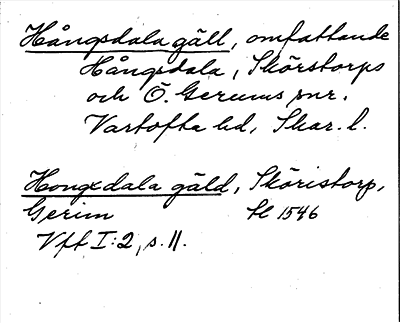 Hångsdala gäll, omfattande
Hångsdala, Skörstorps
och Ö. Gerums snr.
Vartofta hd, Skar. l.
Hongxdala gäld, Sköristorp,
Gerim SC 1546
Vff I:2, s. 11.